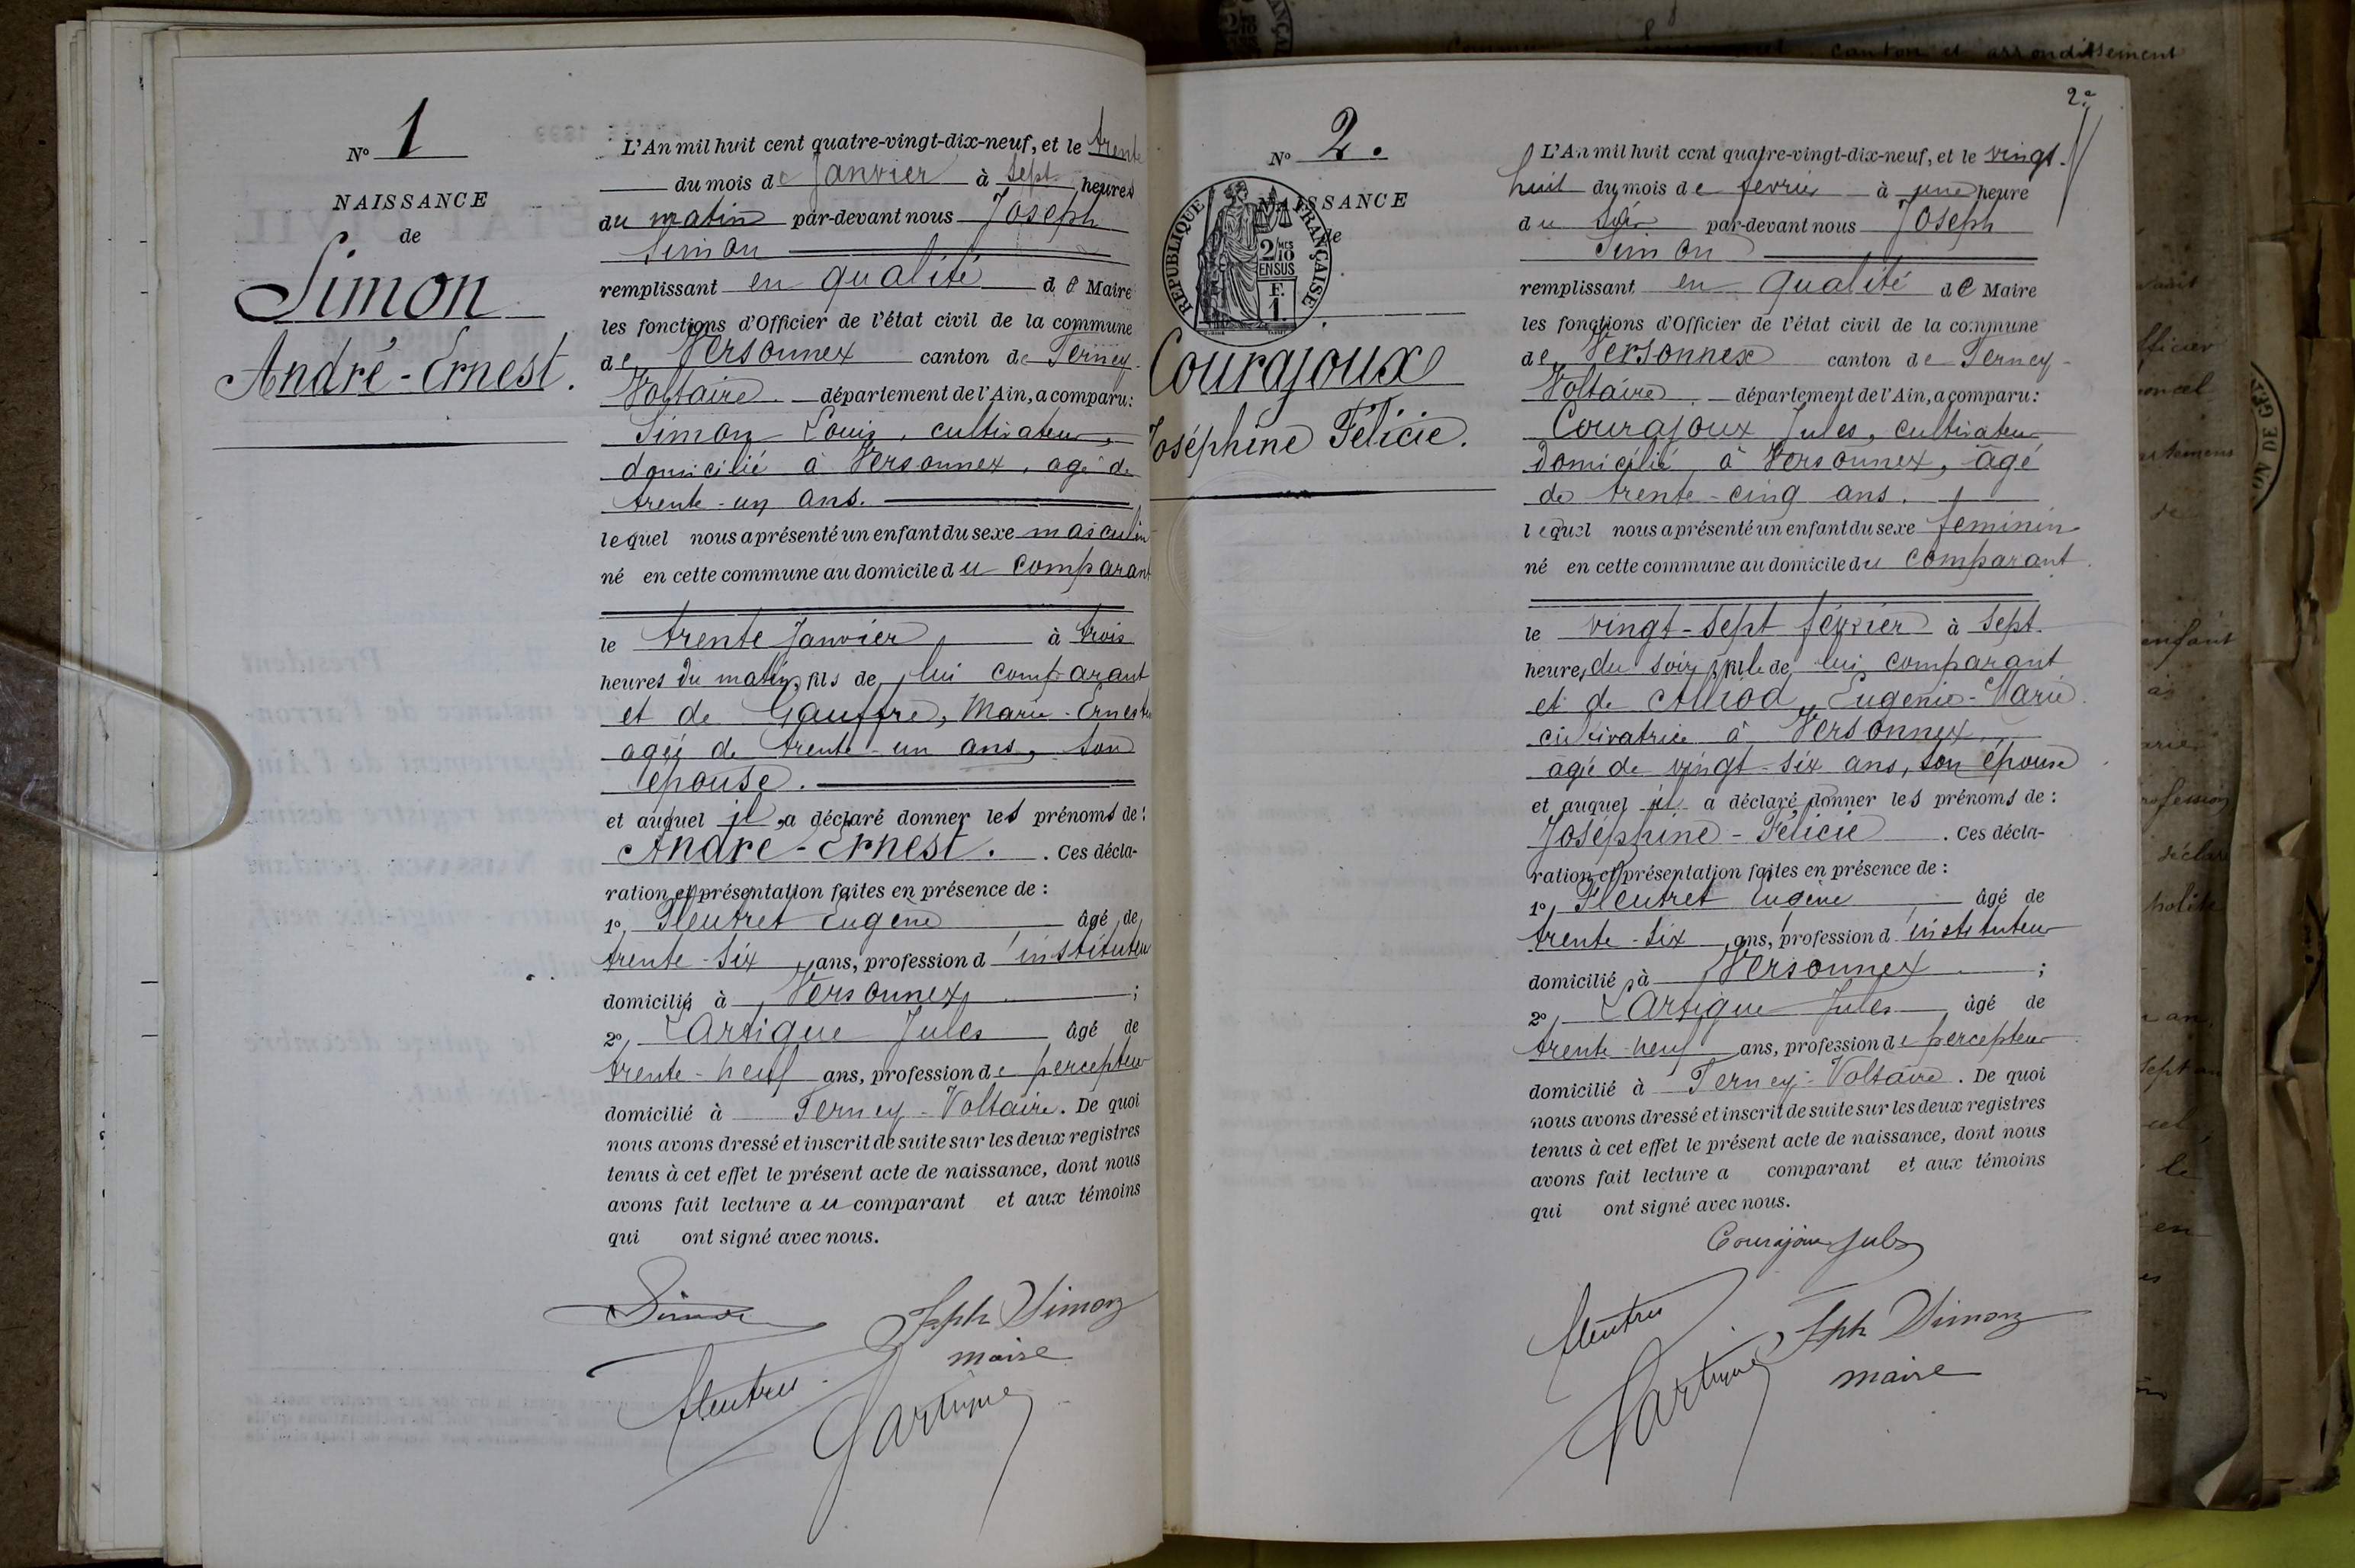 N° 1
NAISSANCE
de
Simon
André-Ernest.
L'An mil huit cent quatre-vingt-dix-neuf, et le trente
du mois de Janvier à sept heures
du matin par-devant nous Joseph
Simon
remplissant en qualité de Maire
les fonctions d'Officier de l'état civil de la commune
de Versonnex canton de Ferney-
Voltaire département de l'Ain, a comparu:
Simon Louis, cultivateur,
domicilié à Versonnex, agé de
trente-un ans.
lequel nous a présenté un enfant du sexe masculin
né en cette commune au domicile du comparant
le trente Janvier à trois
heures du matin, fils de lui comparant
et de Gauffre, Marie-Ernestine
agée de trente-un ans, son
épouse.
et auquel il a déclaré donner les prénoms de:
André-Ernest. . Ces décla-
ration et présentation faites en présence de:
1°, Fleutret Eugène âgé de
trente-six ans, profession d'instituteur
domicilié à Versonnex ;
2°, Lartigue Jules âgé de
trente-neuf ans, profession de percepteur
domicilié à Ferney-Voltaire. De quoi
nous avons dressé et inscrit de suite sur les deux registres
tenus à cet effet le présent acte de naissance, dont nous
avons fait lecture au comparant et aux témoins
qui ont signé avec nous.
Simon
Jsph Simon
maire
Fleutret
Lartigue
canton et arrondissement
2e
N° 2.
NAISSANCE
de
REPUBLIQUE FRANÇAISE
2/10 MES
EN SUS
F.
1
Courajoux
Joséphine Félicie.
L'An mil huit cent quatre-vingt-dix-neuf, et le vingt-
huit du mois de fevrier à une heure
du soir par-devant nous Joseph
Simon
remplissant en qualité de Maire
les fonctions d'Officier de l'état civil de la commune
de Versonnex canton de Ferney-
Voltaire département de l'Ain, a comparu:
Courajoux Jules, cultivateur
domicilié à Versonnex, âgé
de trente-cinq ans.
lequel nous a présenté un enfant du sexe feminin
né en cette commune au domicile du comparant.
le vingt-sept février à sept
heures du soir, fille de lui comparant
et de Eugénie-Marie
cultivatrice à Versonnex,
agée de vingt-six ans, son épouse
et auquel il a déclaré donner les prénoms de:
Joséphine-Félicie . Ces décla-
ration et présentation faites en présence de:
1°, Fleutret Eugène âgé de
trente-six ans, profession d'instituteur
domicilié à Versonnex ;
2°, Lartigue Jules âgé de
trente-neuf ans, profession de percepteur
domicilié à Ferney-Voltaire. De quoi
nous avons dressé et inscrit de suite sur les deux registres
tenus à cet effet le présent acte de naissance, dont nous
avons fait lecture a comparant et aux témoins
qui ont signé avec nous.
Courajoux Jules
Fleutret
Jsph Simon
maire
Lartigue